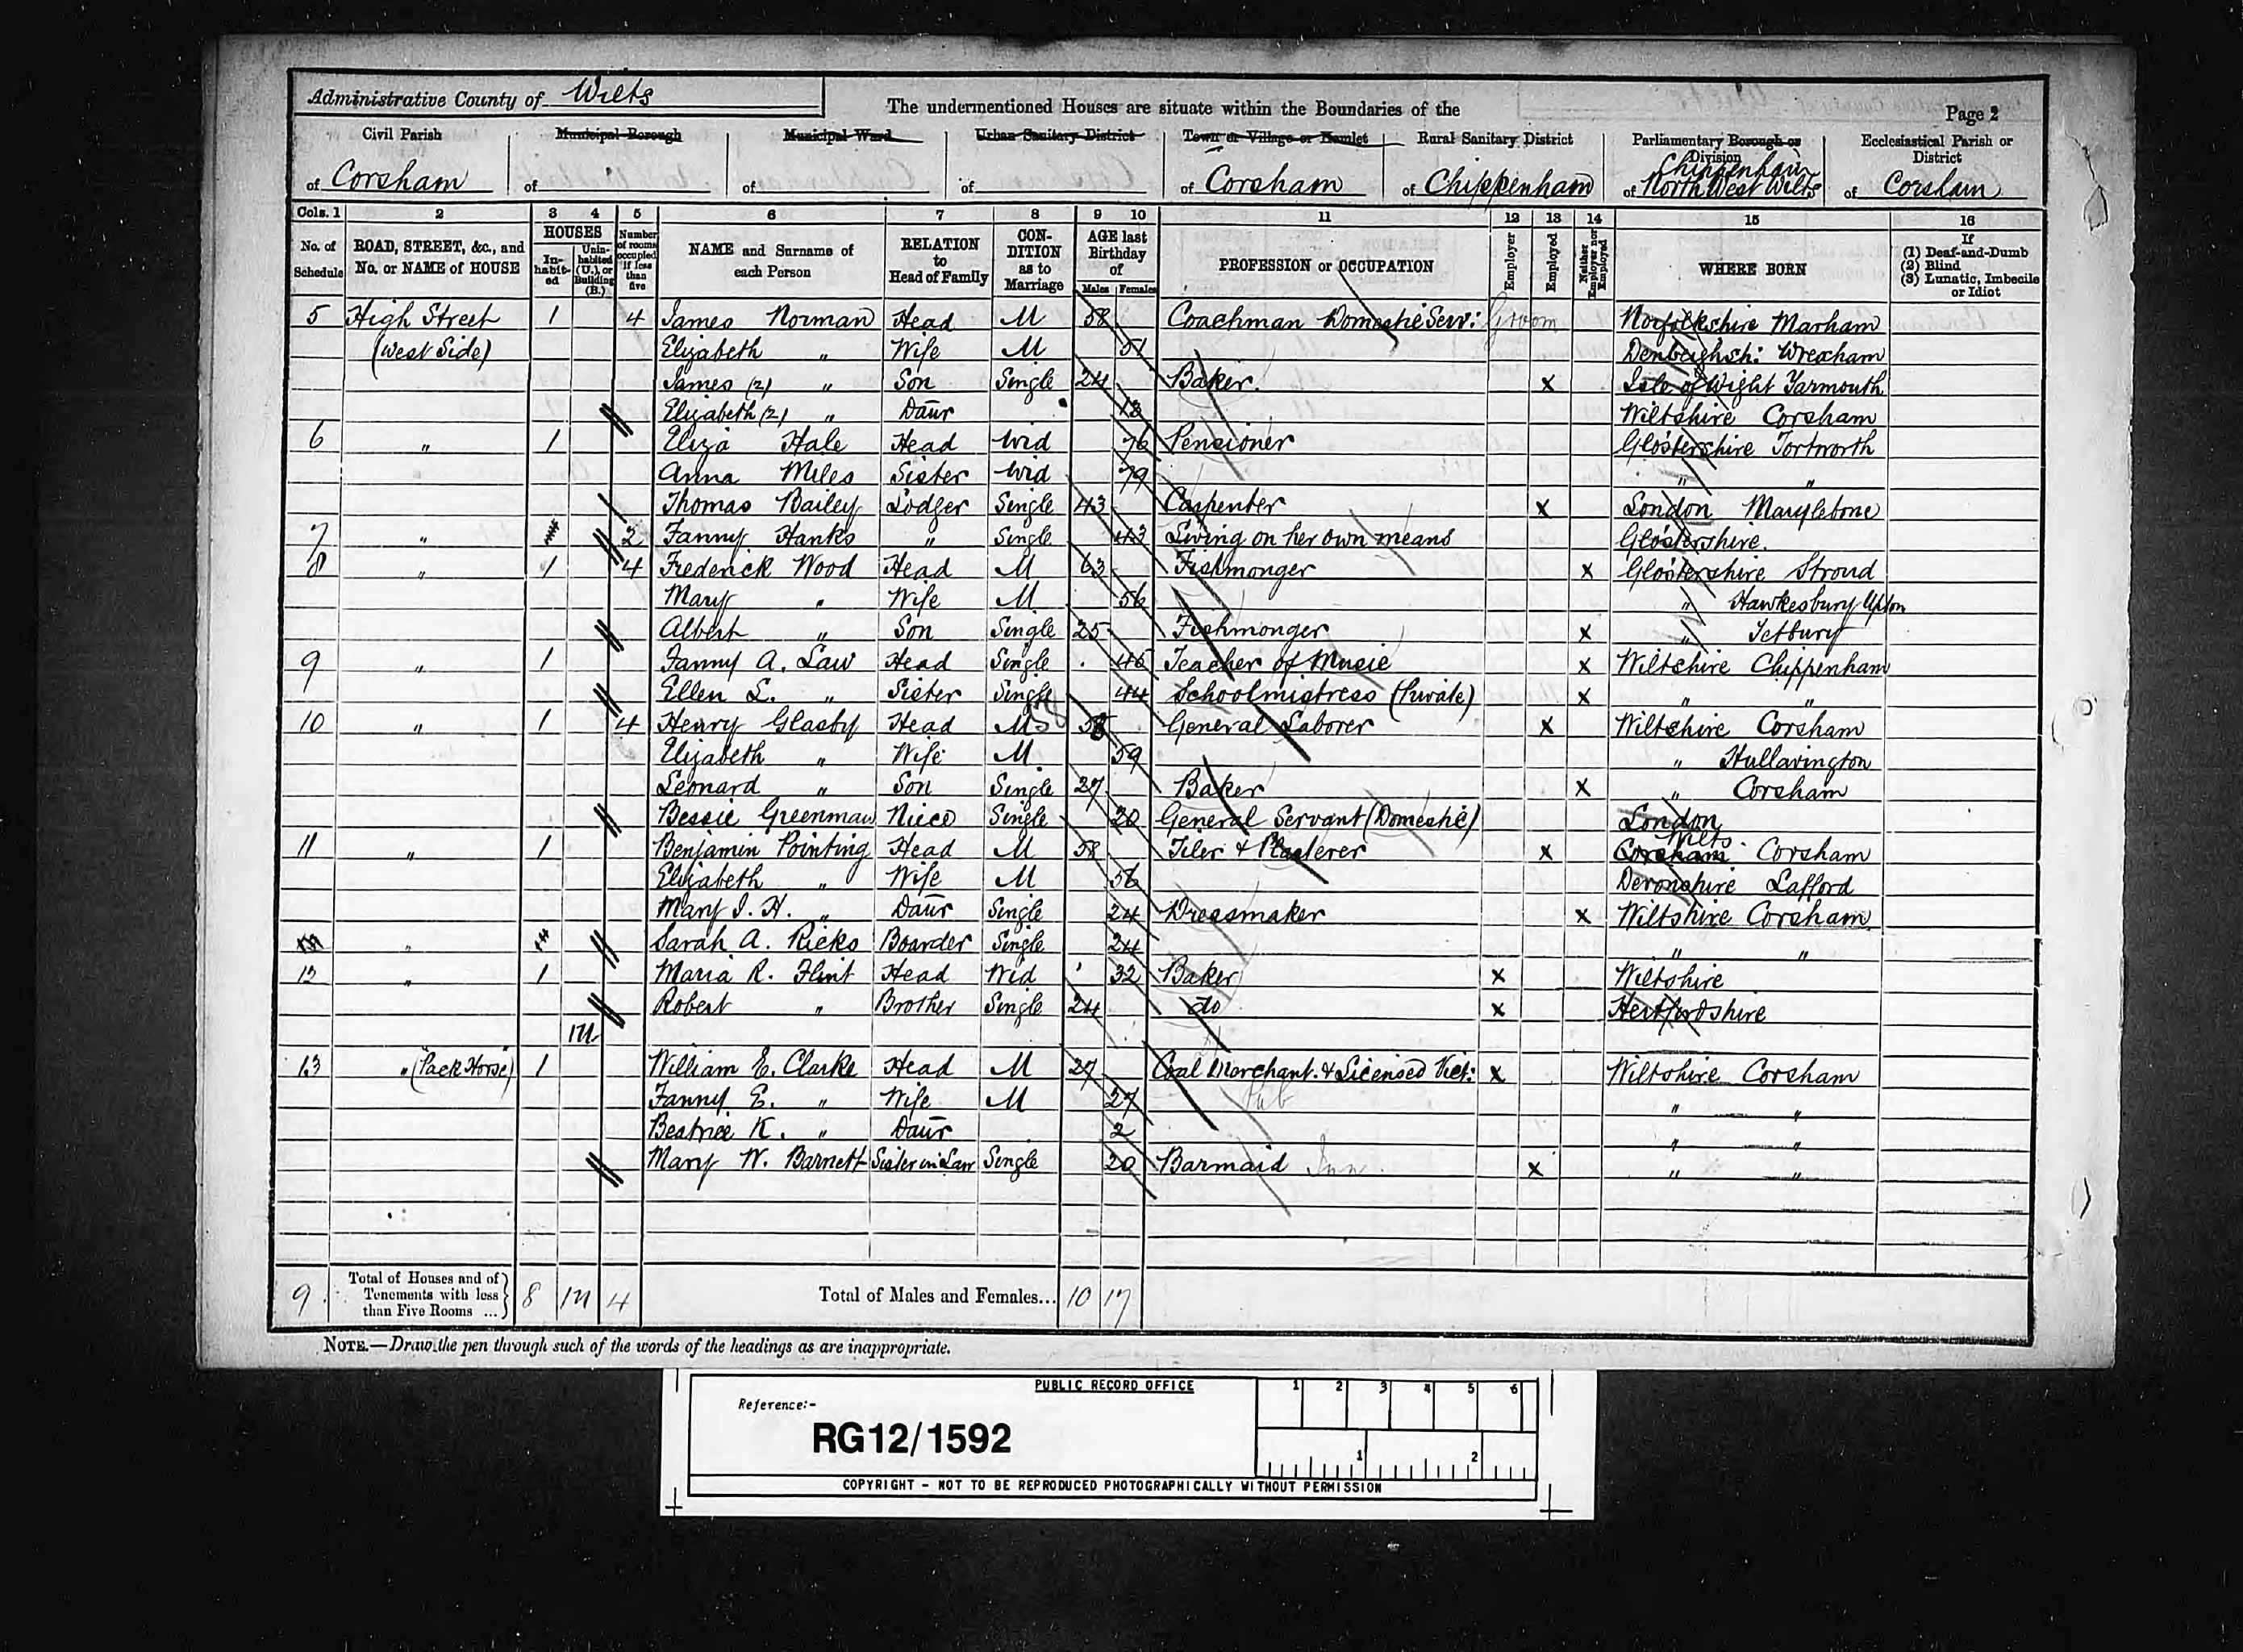 Administrative County of Wilts
The undermentioned Houses are situate within the Boundaries of the
Page 2
Civil Parish Municipal Borough Municipal Ward Urban Sanitary District Town or Village or Hamlet Rural Sanitary District Parliamentary Borough or Division Ecclesiastical Parish or District
of Corsham of of of of Corsham of Chippenham of Chippenham North West Wilts of Corsham
Cols. 1 2 3 4 5 6 7 8 9 10 11 12 13 14 15 16
No. of Schedule ROAD, STREET, &c., and No. or NAME of HOUSE HOUSES Inhabited Uninhabited (U.), or Building (B.) Number of rooms occupied if less than five NAME and Surname of each Person RELATION to Head of Family CONDITION as to Marriage AGE last Birthday of Males Females PROFESSION or OCCUPATION Employer Employed Neither Employer nor Employed WHERE BORN If (1) Deaf-and-Dumb (2) Blind (3) Lunatic, Imbecile or Idiot
5 High Street 1 4 James Norman Head M 58 Coachman Domestic Serv: Groom Norfolkshire Marham
(West Side) Elizabeth " Wife M 51 Denbighsh: Wrexham
James (2) " Son Single 24 Baker. X Isle of Wight Yarmouth
Elizabeth (2) " Daur 13 Wiltshire Corsham
6 " 1 Eliza Hale Head Wid 76 Pensioner Glostershire Tortworth
Anna Miles Sister Wid 79 " "
Thomas Bailey Lodger Single 43 Carpenter X London Marylebone
7 " 2 Fanny Hanks " Single 43 Living on her own means Glostershire.
8 " 1 4 Frederick Wood Head M 63 Fishmonger X Glostershire Stroud
Mary " Wife M 56 " Hawkesbury Upton
Albert " Son Single 25 Fishmonger X " Tetbury
9 " 1 Fanny A. Law Head Single 46 Teacher of Music X Wiltshire Chippenham
Ellen L. " Sister Single 44 Schoolmistress (Private) X " "
10 " 1 4 Henry Glasby Head M 58 58 General Laborer X Wiltshire Corsham
Elizabeth " Wife M 59 " Hullavington
Leonard " Son Single 27 Baker X " Corsham
Bessie Greenman Niece Single 20 General Servant (Domestic) London
11 " 1 Benjamin Pointing Head M 58 Tiler & Plasterer X Corsham Wilts Corsham
Elizabeth " Wife M 56 Devonshire Lafford
Mary I. H. " Daur Single 24 Dressmaker X Wiltshire Corsham
" Sarah A. Ricks Boarder Single 24 " "
12 " 1 Maria R. Flint Head Wid 32 Baker X Wiltshire
Robert " Brother Single 24 do X Hertfordshire
1U
13 " (Pack Horse) 1 William E. Clarke Head M 27 Coal Merchant. & Licensed Vict: X Wiltshire Corsham
Fanny E. " Wife M 27 Pub " "
Beatrice K. " Daur 2 " "
Mary W. Barnett Sister in Law Single 20 Barmaid Inn X " "
9 Total of Houses and of Tenements with less than Five Rooms ... 8 1U 4 Total of Males and Females... 10 17
NOTE.—Draw the pen through such of the words of the headings as are inappropriate.
PUBLIC RECORD OFFICE 1 2 3 4 5 6
Reference:-
RG12/1592
1 2
COPYRIGHT - NOT TO BE REPRODUCED PHOTOGRAPHICALLY WITHOUT PERMISSION